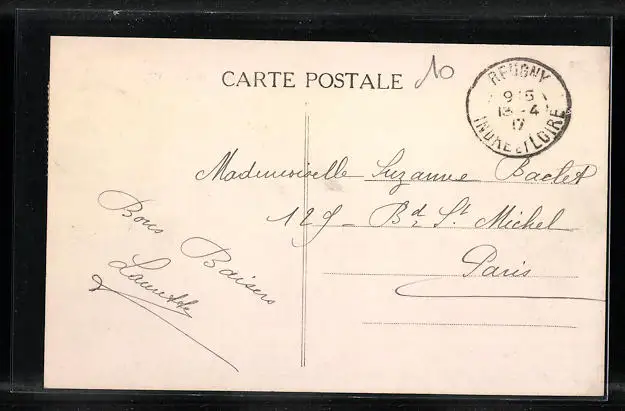 CARTE POSTALE
10
REUGNY
9 15
13 - 4
17
INDRE ET LOIRE
Mademoiselle Suzanne Baclet
129 - Bd St Michel
Paris
Bons Baisers
Laurette